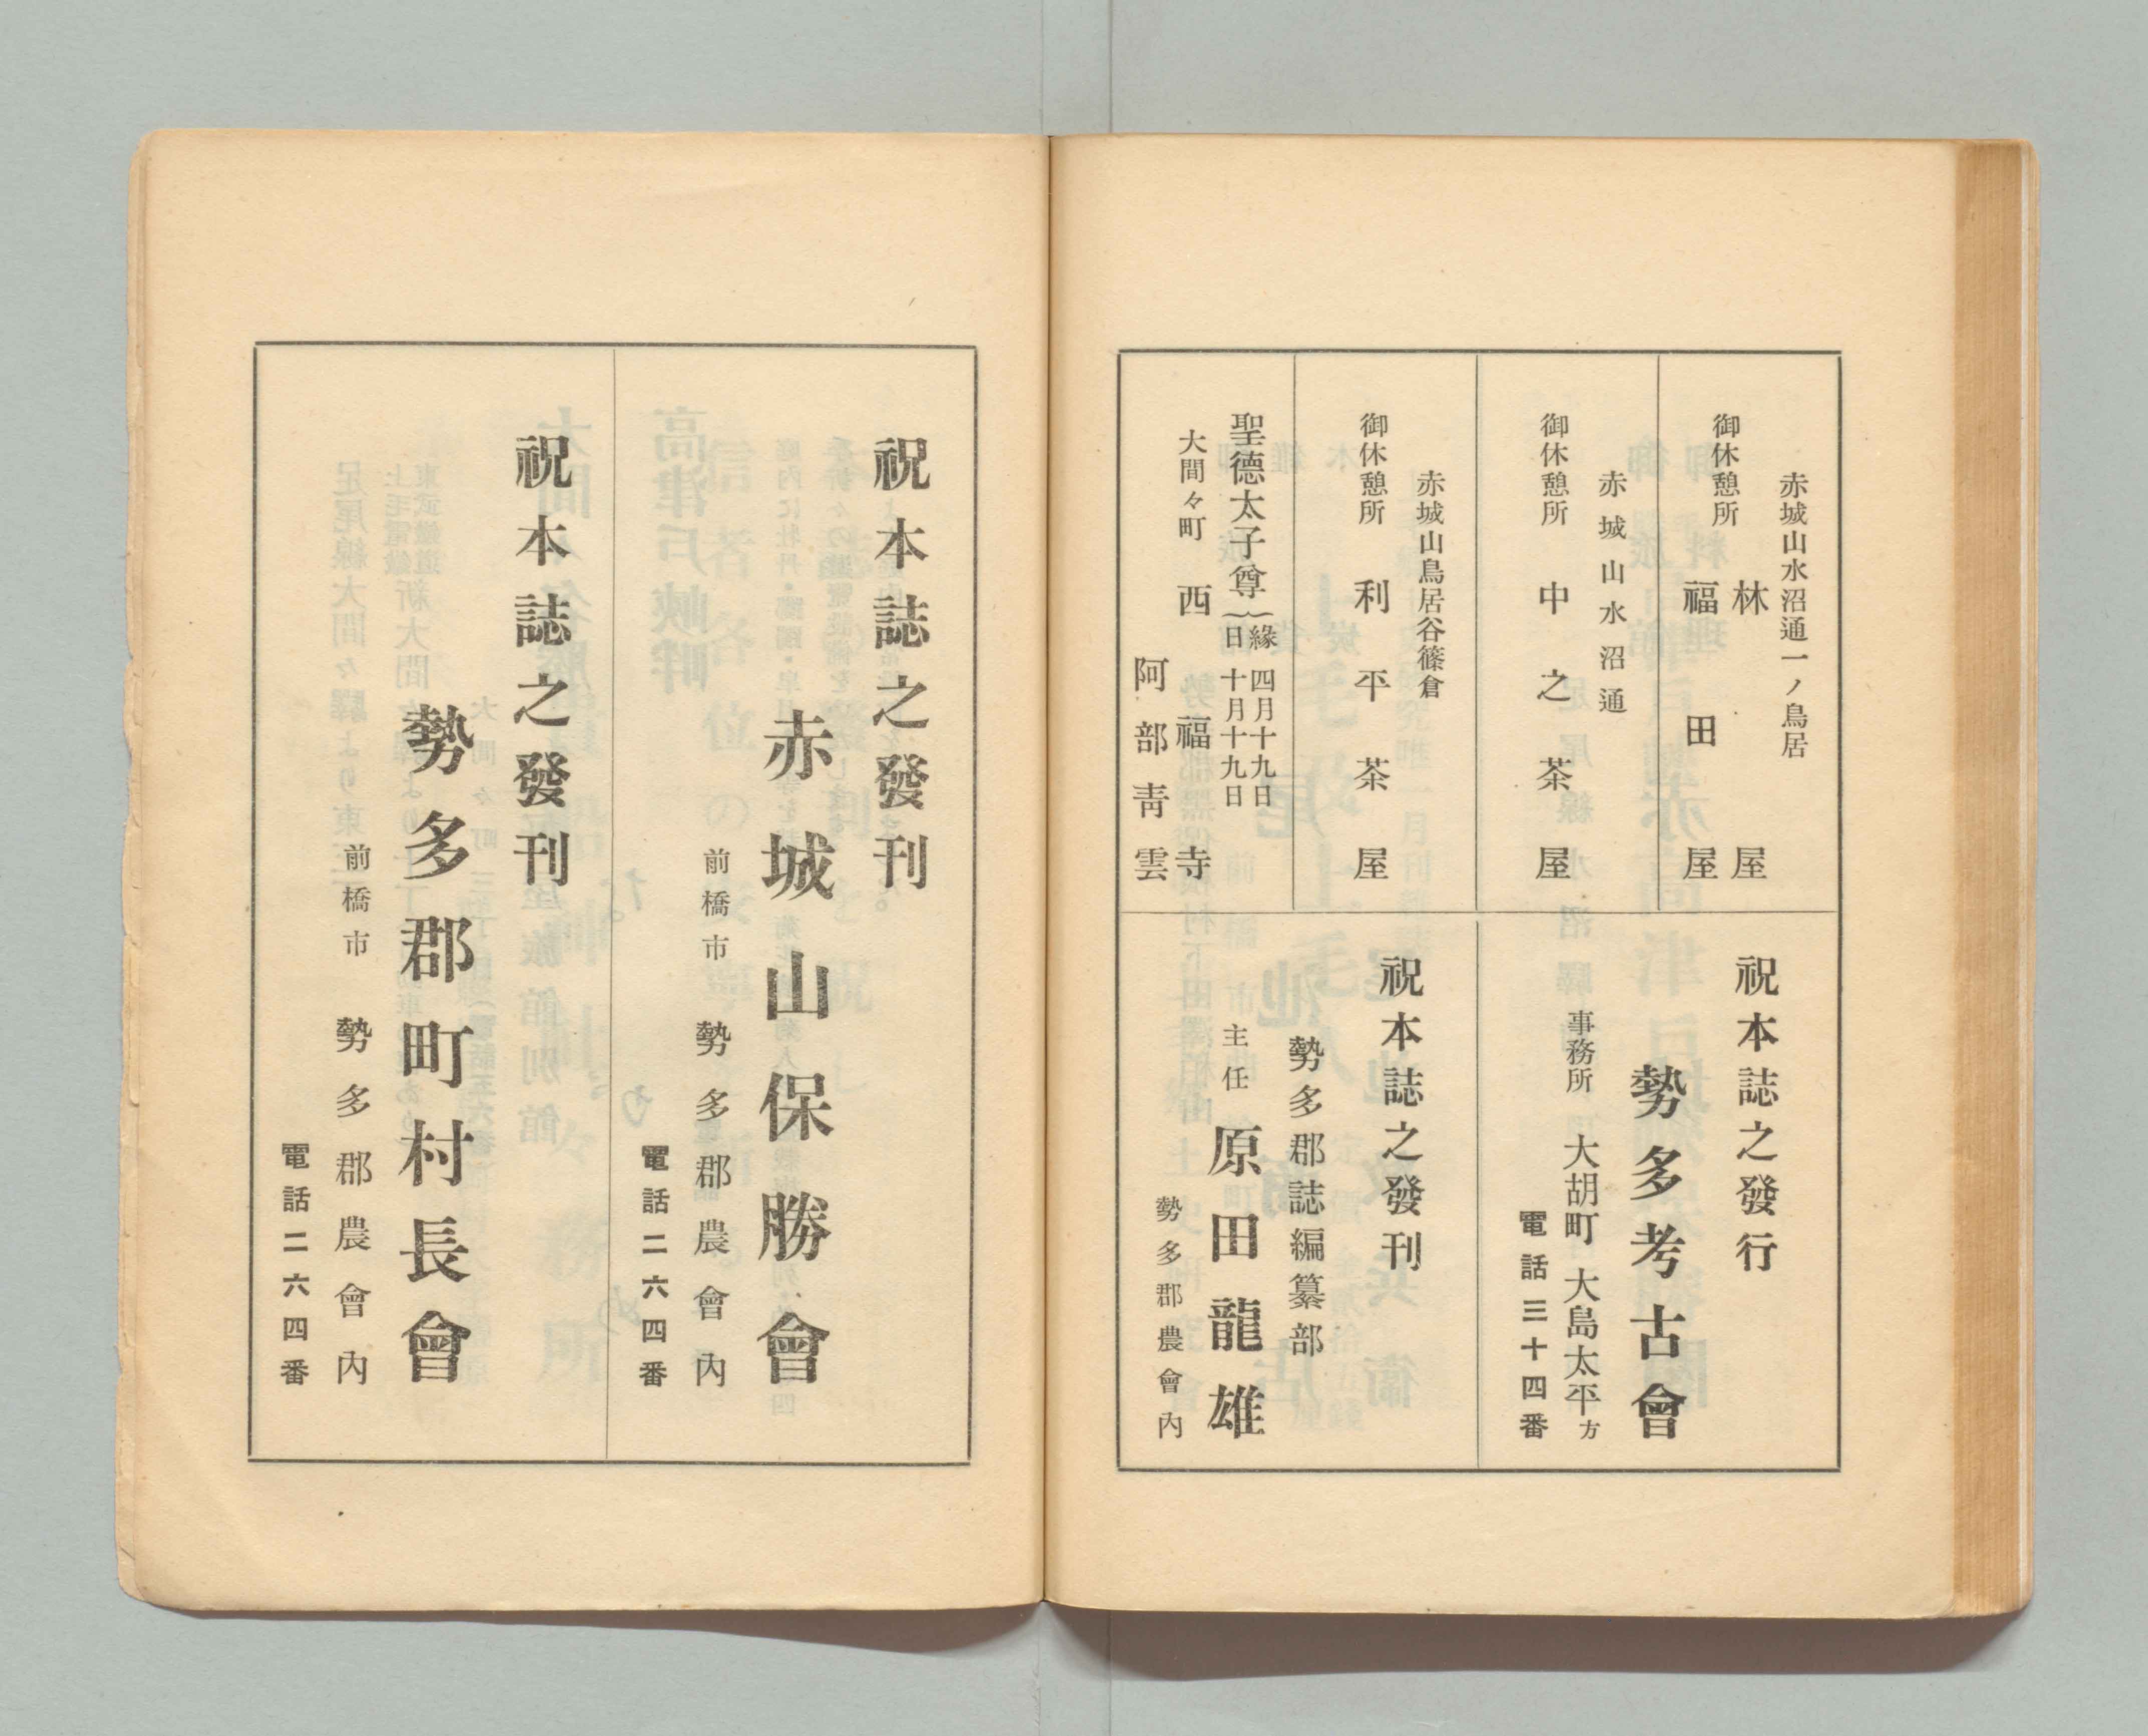 赤城山水沼通一ノ鳥居
御休憩所
林屋
福田屋
赤城山水沼通
御休憩所 中之茶屋
赤城山鳥居谷篠倉
御休憩所 利平茶屋
聖德太子尊 緣日 四月十九日 十月十九日
大間々町 西福寺
阿部靑雲
祝本誌之發行
勢多考古會
事務所 大胡町 大島太平方
電話三十四番
祝本誌之發刊
勢多郡誌編纂部
主任 原田龍雄
勢多郡農會內
祝本誌之發刊
赤城山保勝會
前橋市 勢多郡農會內
電話二六四番
祝本誌之發刊
勢多郡町村長會
前橋市 勢多郡農會內
電話二六四番